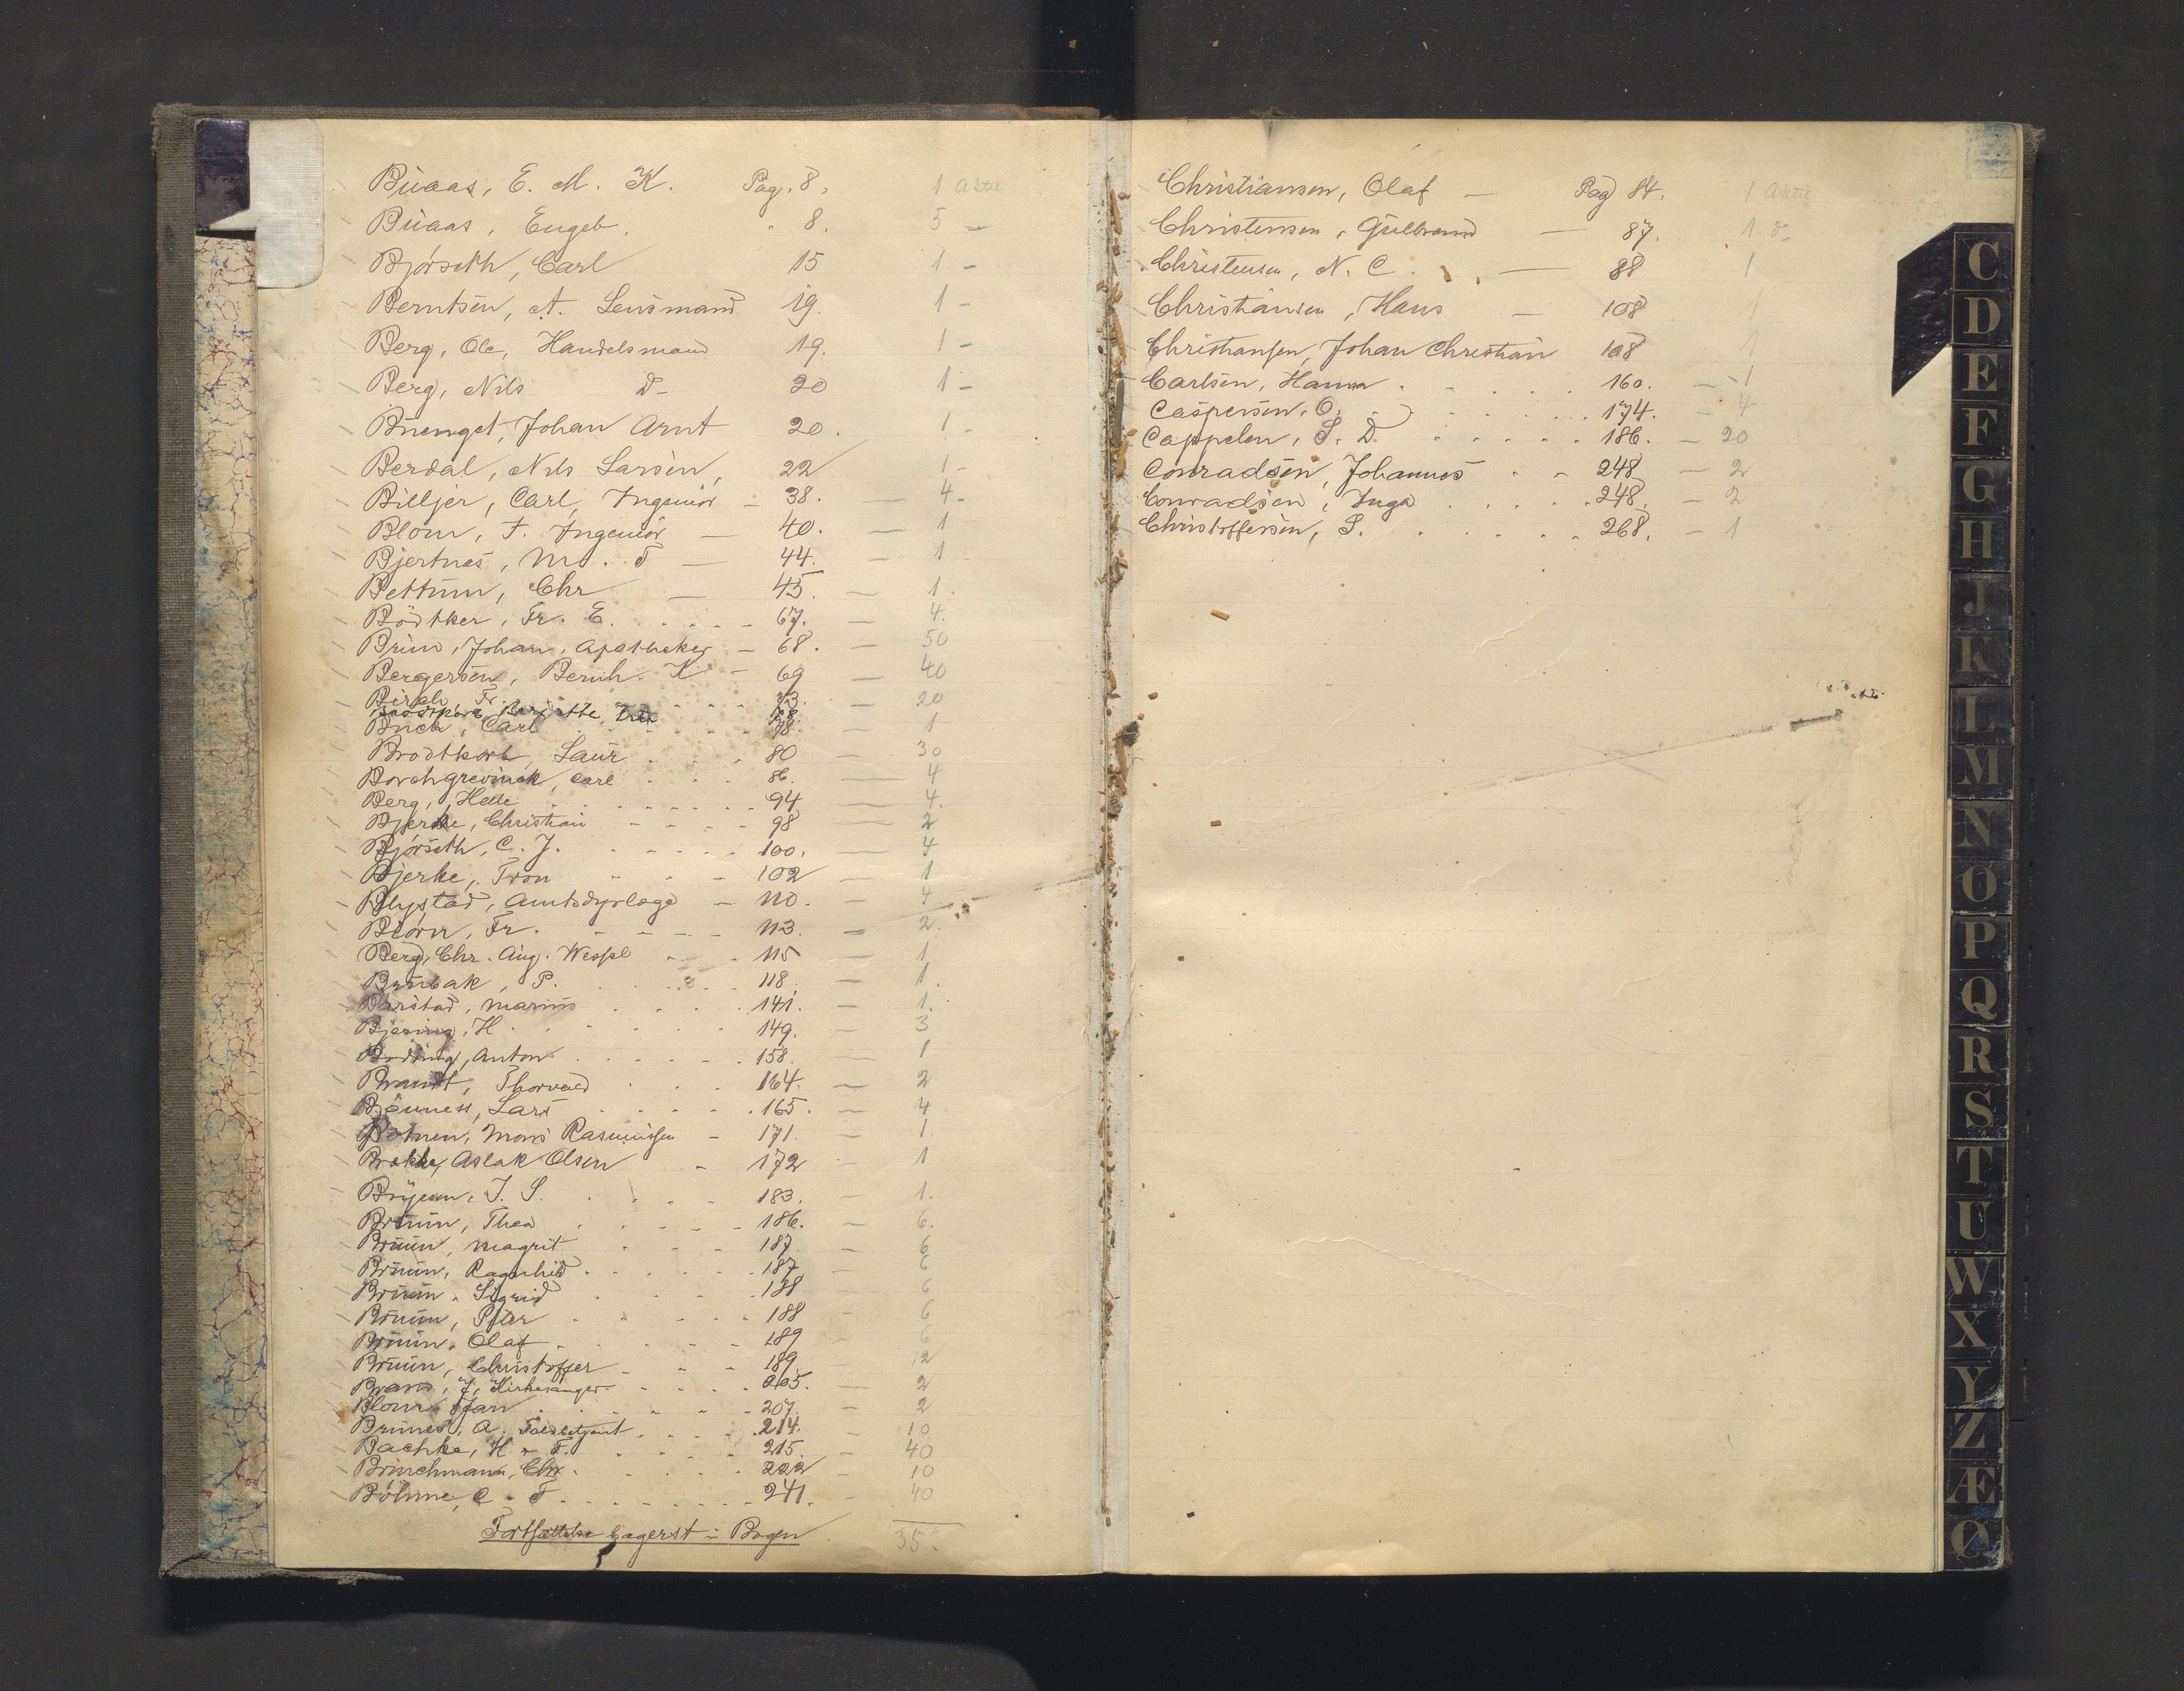 Buaas, E. M. K. Pag. 8. 1 Aktie
Buaas, Engeb. " 8. 5 -
Bjørseth, Carl 15 1 -
Berntsen, A. Lensmand 19. 1 -
Berg, Ole, Handelsmand 19. 1 -
Berg, Nils do- 20 1 -
Buenget, Johan Arnt 20. 1 -
Berdal, Nils Larsen, 22 1 -
Billjer, Carl, Ingeniør - 38. - 4 -
Blom, F. Ingeniør - 40. - 1
Bjertnes, M. T - 44. - 1
Bettum, Chr - 45. - 1.
Bødtker, Fr. E. - 67. - 4.
Brun, Johan, Apotheker - 68. - 50
Bergersen, Bernh. K - 69 - 40
Birch, Fr. 73. - 20
78
Buch, Carl 78. - 1
Brodtkorb, Laur. 80 - 30
Borchgrevinck, Carl 86. - 4
Berg, Helle 94 - 4.
Bjerke, Christian 98 - 2
Bjørseth, C. J. 100. - 4
Bjerke, Tron 102 - 1
Blystad, Amtsdyrlæge - 110. - 4
Bjørn, Fr. 113. - 2
Berg, Chr. Aug. Wessel 115 - 1
P. 118 - 1.
Barstad, Marius 141. - 1.
H. 149. - 3
Anton 158. - 1
Brandt, Thorvald 164. - 2
Bjønness, Lars 165. - 4
Botnen, Mons Rasmussen - 171. - 1.
Brokke, Aslak Olsen - 172 - 1
J. S. 183. - 1.
Bruun, Thea 186. - 6.
Bruun, Magrit 187 - 6
Bruun, Ragnhild 187 - 6
Bruun, Sigrid 188 6
Bruun, Peter 188 - 6
Bruun, Olaf 189 - 6
Bruun, Christoffer 189 12
J, Kirkesanger 205. - 2
Blom, 207. - 2
A. Toldbetjent 214. - 10
Bachke, H. F. 215. - 40
Brinchmann, Chr. 222 - 10
Bøhme, C. F. 241. - 40
Fortsættelse bagerst i Bogen
35
Christiansen, Olaf - Pag 84. 1 Aktie
Christensen, Gulbrand - 87. 1 do-
Christensen, N. C. - 88 1
Christiansen, Hans - 108 1
Christiansen, Johan Christian 108 1
Carlsen, Hanna 160. - 1
Caspersen, O. 174. - 4
Cappelen, S. D. 186. - 20
Conradsen, Johannes 248 - 2
Conradsen, Inga 248. - 2
Christoffersen, S. 268. - 1
C
D
E
F
G
H
J
K
L
M
N
O
P
Q
R
S
T
U
W
X
Y
Z
Æ
Ø